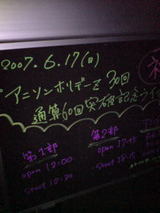 2007.6.17(日)
アニソンホリデーズ30回
通算60回突破記念ライ
第1部
open 12:00
start 12:30
第2部
open 17
start 18